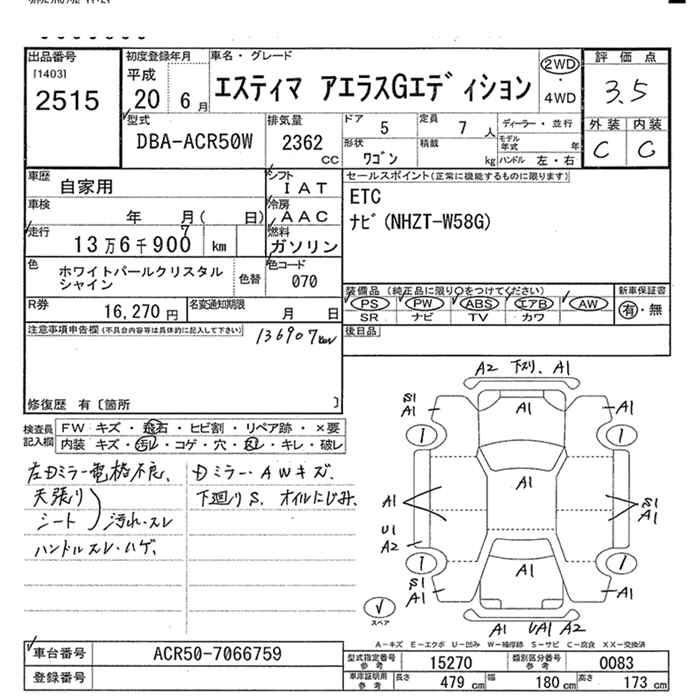 出品番号 初度登録年月 車名・グレード 2WD 評価点
[1403] 平成 エスティマ アエラスGエディション ・ 3.5
2515 20 6月 4WD
型式 排気量 ドア 定員 ディーラー・並行 外装 内装
DBA-ACR50W 2362 CC 5 7人 モデル年式 年 C C
形状 積載 kg ハンドル 左・右
ワゴン
車歴 自家用 シフト IAT セールスポイント(正常に機能するものに限ります)
車検 年 月( 日) 冷房 AAC ETC
走行 13万6千900 7 km 燃料 ガソリン ナビ(NHZT-W58G)
色 ホワイトパールクリスタル 色替 色コード
シャイン 070
装備品(純正品に限り○をつけてください) 新車保証書
R券 16,270円 名変通知期限 月 日 PS PW ABS エアB AW 有・無
SR ナビ TV カワ
注意事項申告欄(不具合内容等は具体的に記入して下さい) 136907km 後日品
修復歴 有〔箇所 〕
検査員記入欄 FW キズ・飛石・ヒビ割・リペア跡・×要
内装 キズ・汚レ・コゲ・穴・スレ・キレ・破レ
左Dミラー電格不良、 Dミラー・AWキズ、
天張り 下廻りS、オイルにじみ、
シート 汚れ・スレ
ハンドルスレ・ハゲ、
A2 下スリ、A1
S1 A1
A1 A1
1 1
A1
A1 S1
A1
U1
A2
1 1
S1 A1
A1 A1
スペア
A1 UA1 A2
A-キズ E-エクボ U-凹み W-補修跡 S-サビ C-腐食 XX-交換済
車台番号 ACR50-7066759 型式指定番号 参考 15270 類別区分番号 参考 0083
登録番号 車庫証明用 参考 長さ 479 cm 幅 180 cm 高さ 173 cm